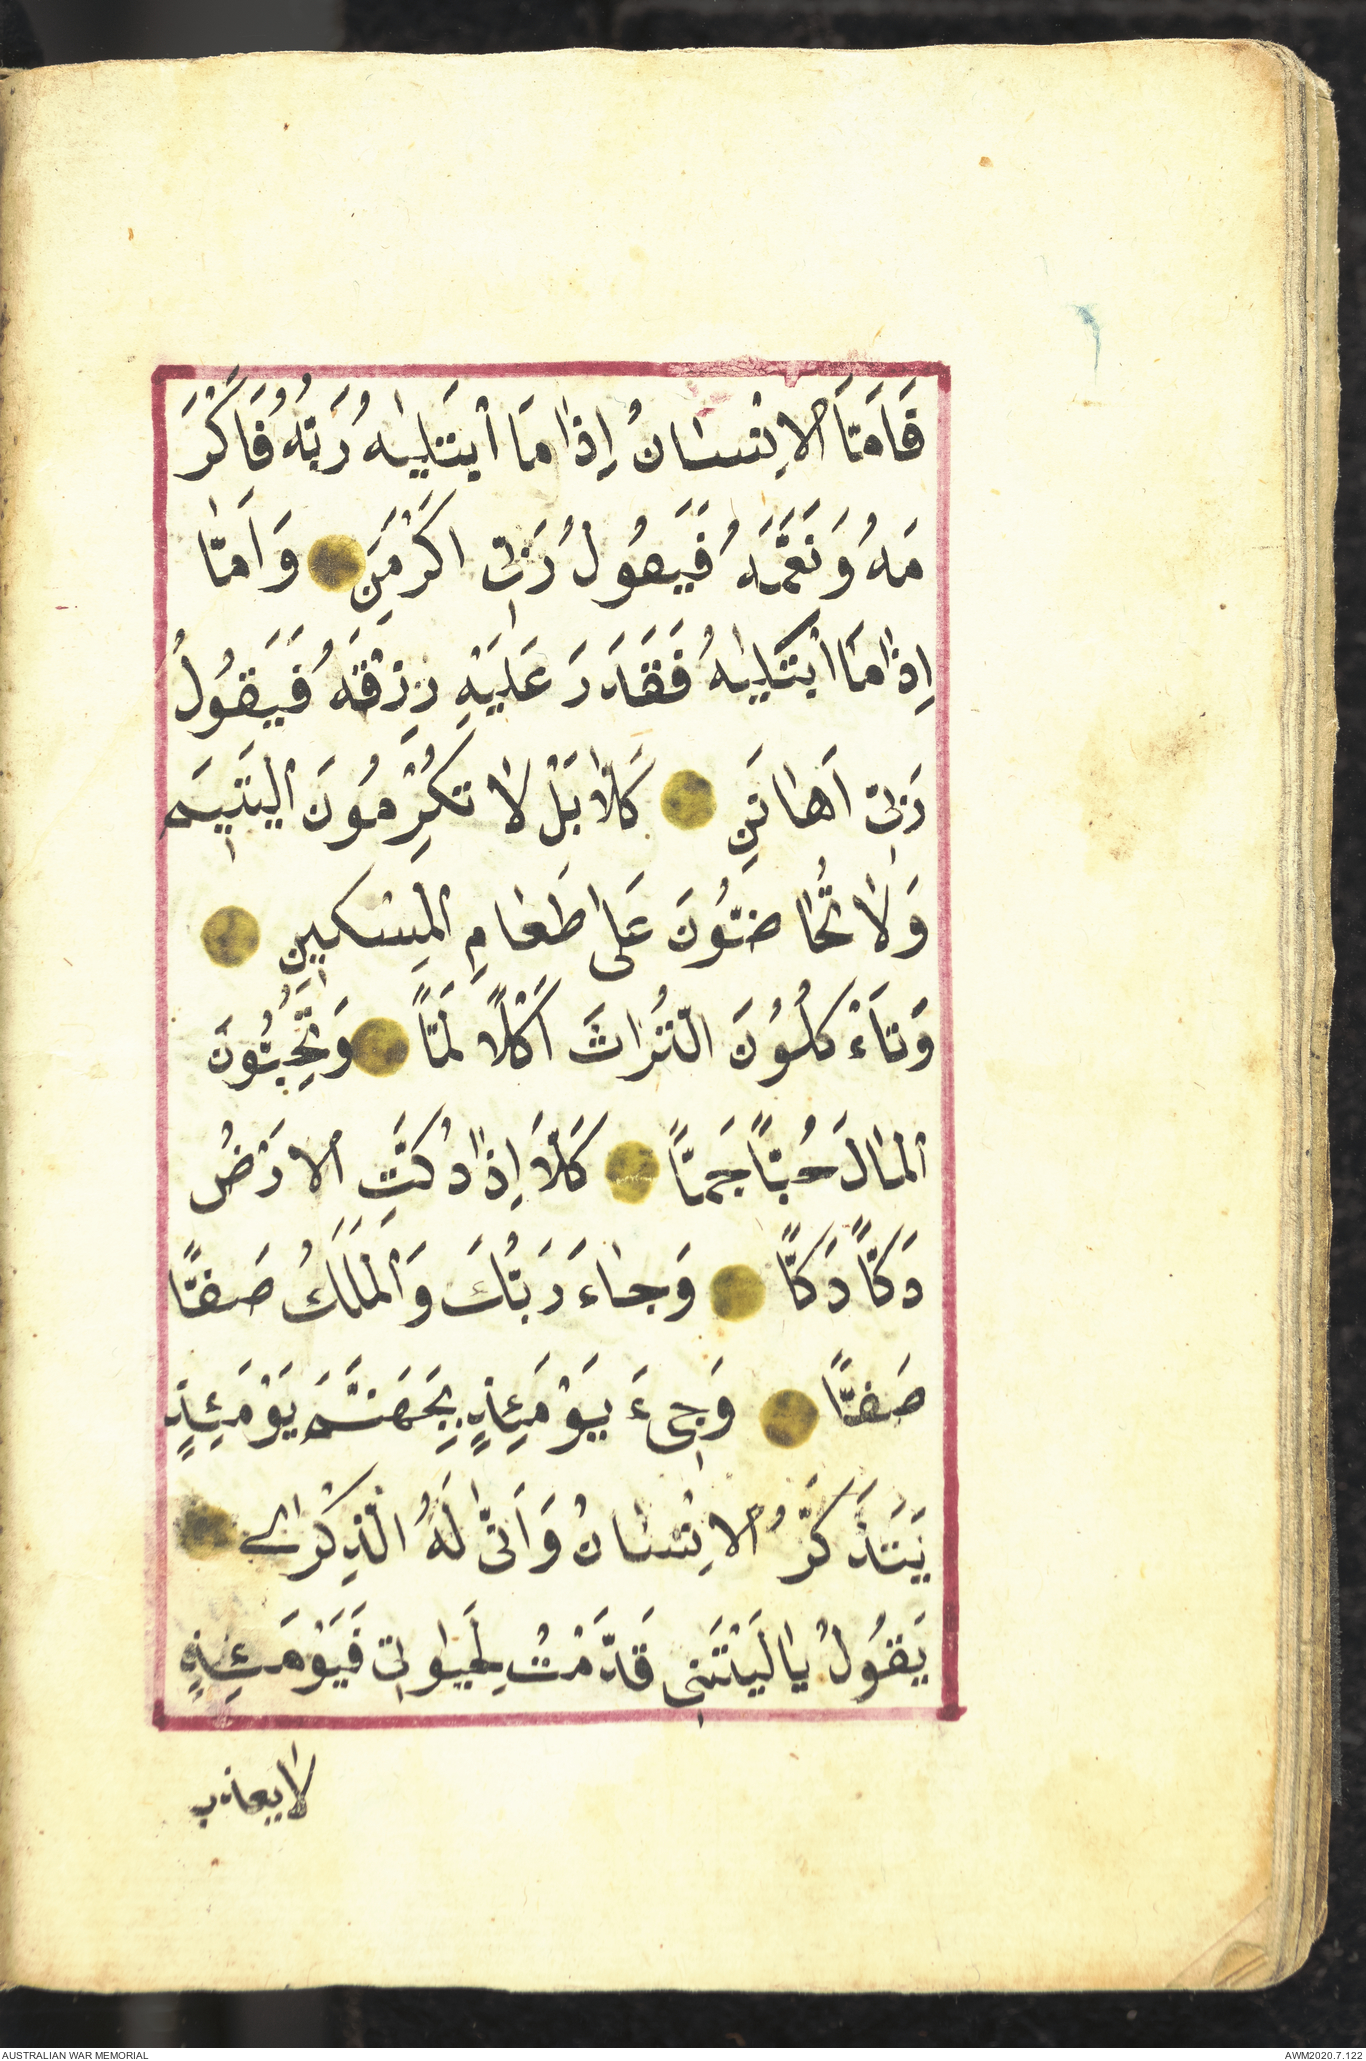 فَاَمَّا الْاِنْسَانُ اِذَا مَا ابْتَلَيٰهُ رَبُّهُ فَاَكْرَ
مَهُ وَنَعَّمَهُ فَيَقُولُ رَبّٖى اَكْرَمَنِ وَاَمَّا
اِذَا مَا ابْتَلَيٰهُ فَقَدَرَ عَلَيْهِ رِزْقَهُ فَيَقُولُ
رَبّٖى اَهَانَنِ كَلَّا بَلْ لَا تُكْرِمُونَ الْيَتٖيمَ
وَلَا تُحَاضُّونَ عَلٰى طَعَامِ الْمِسْكٖينِ
وَتَاْءكُلُونَ التُّرَاثَ اَكْلًا لَمًّا وَتُحِبُّونَ
الْمَالَ حُبًّا جَمًّا كَلَّا اِذَا دُكَّتِ الْاَرْضُ
دَكًّا دَكًّا وَجَاءَ رَبُّكَ وَالْمَلَكُ صَفًّا
صَفًّا وَجٖىءَ يَوْمَئِذٍ بِجَهَنَّمَ يَوْمَئِذٍ
يَتَذَكَّرُ الْاِنْسَانُ وَاَنّٰى لَهُ الذِّكْرٰى
يَقُولُ يَا لَيْتَنٖى قَدَّمْتُ لِحَيٰوتٖى فَيَوْمَئِذٍ
لَا يعذب
AUSTRALIAN WAR MEMORIAL
AWM2020.7.122